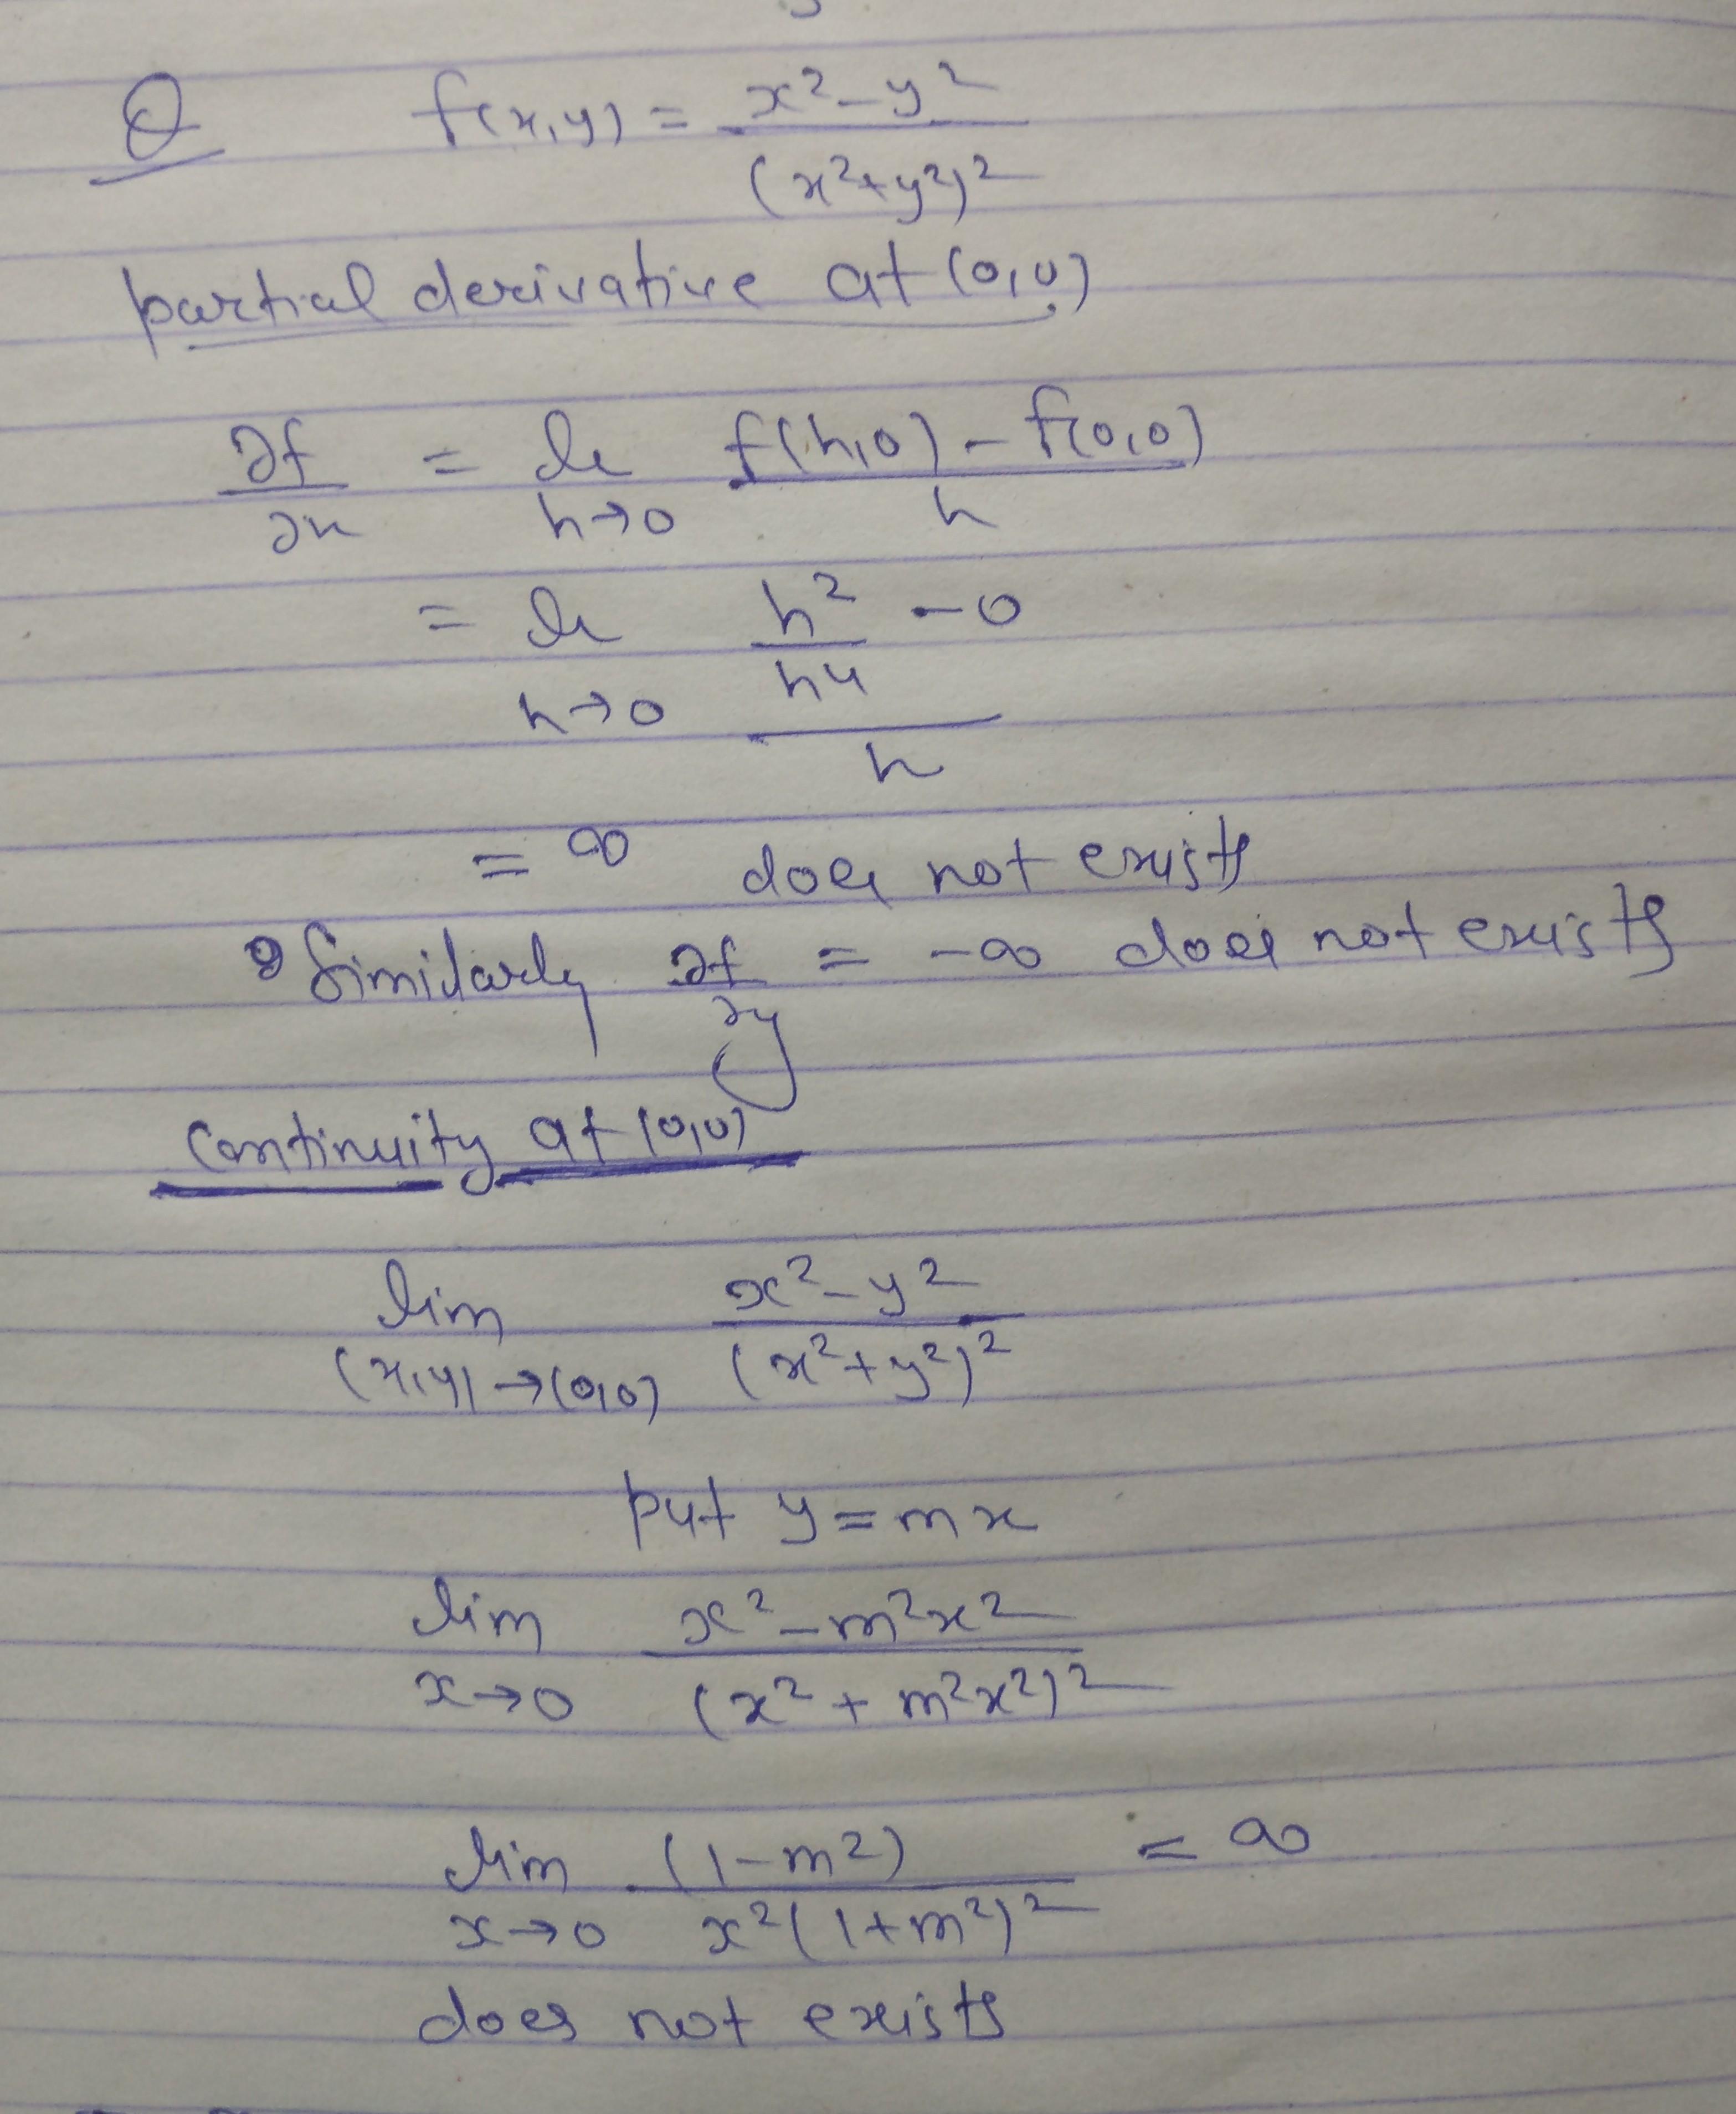 Q f(x,y) = x²-y² / (x²+y²)²
partial derivative at (0,0)
∂f/∂x = lt h→0 f(h,0) - f(0,0) / h
= lt h→0 h²/h4 - 0 / h
= ∞ does not exists
Similarly ∂f/∂y = -∞ does not exists
Continuity at (0,0)
lim (x,y)→(0,0) x²-y² / (x²+y²)²
put y=mx
lim x→0 x²-m²x² / (x²+m²x²)²
lim x→0 (1-m²) / x²(1+m²)² = ∞
does not exists